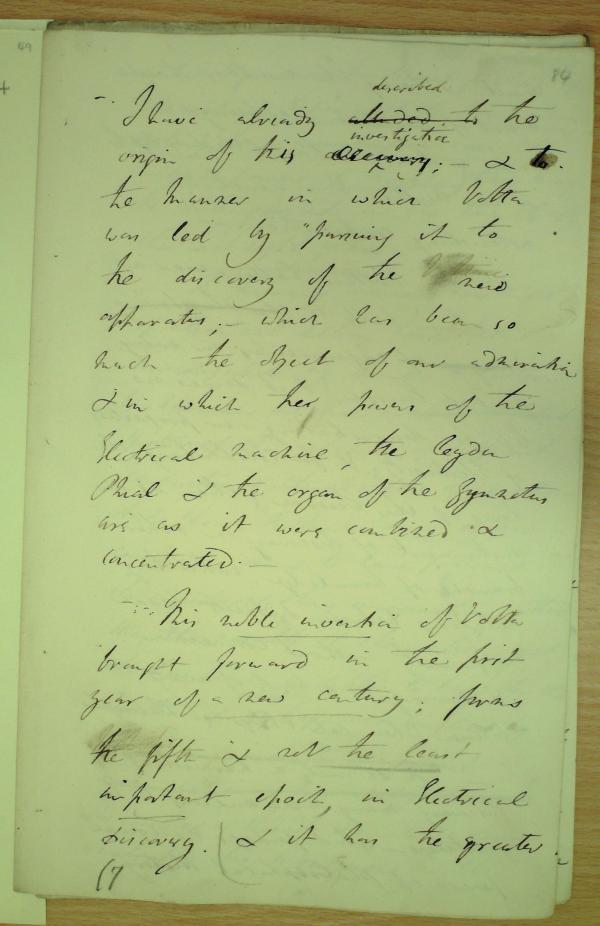 49
84
described
I have already alluded to the
investigation
origin of this discovery; – & to
the manner in which Volta
was led by "pursuing it to
the discovery of the new
apparatus; – which has been so
much the object of our admiration
& in which the powers of the
Electrical machine, the Leyden
Phial & the organ of the Gymnotus
are as it were combined &
concentrated. –
This noble invention of Volta
brought forward in the first
year of a new century; forms
the fifth & not the least
important epoch, in Electrical
discovery. & it has the greater
(7